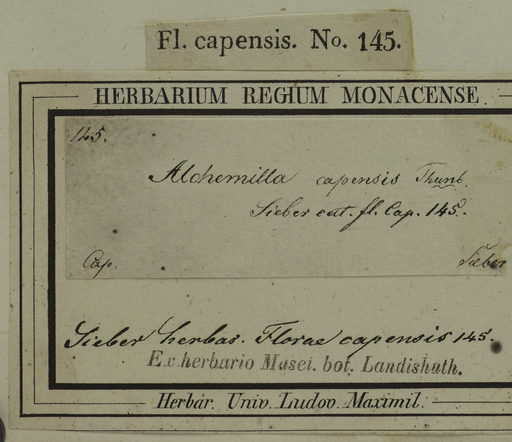 Fl. capensis. No. 145.
HERBARIUM REGIUM MONACENSE.
145.
Alchemilla capensis Thunb.
Sieber cat. fl. Cap. 145.
Cap. Sieber
Sieber herbar. Florae capensis 145.
Ex herbario Musei. bot. Landishuth.
Herbar. Univ. Ludov. Maximil.